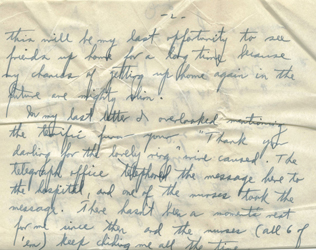 -2-
this will be my last oppertunity to see
friends up home for a long time, because
my chances of getting up home again in the
future are mighty slim.
In my last letter I overlooked mentioning
the from you. "Thank you
darling for the lovely mine caused". The
telegraph office telephoned the message here to
the hospital, and one of the nurses took the
message. There hasn't been a moments rest
for me since then and the nurses (all 6 of
'em) keep me all the time